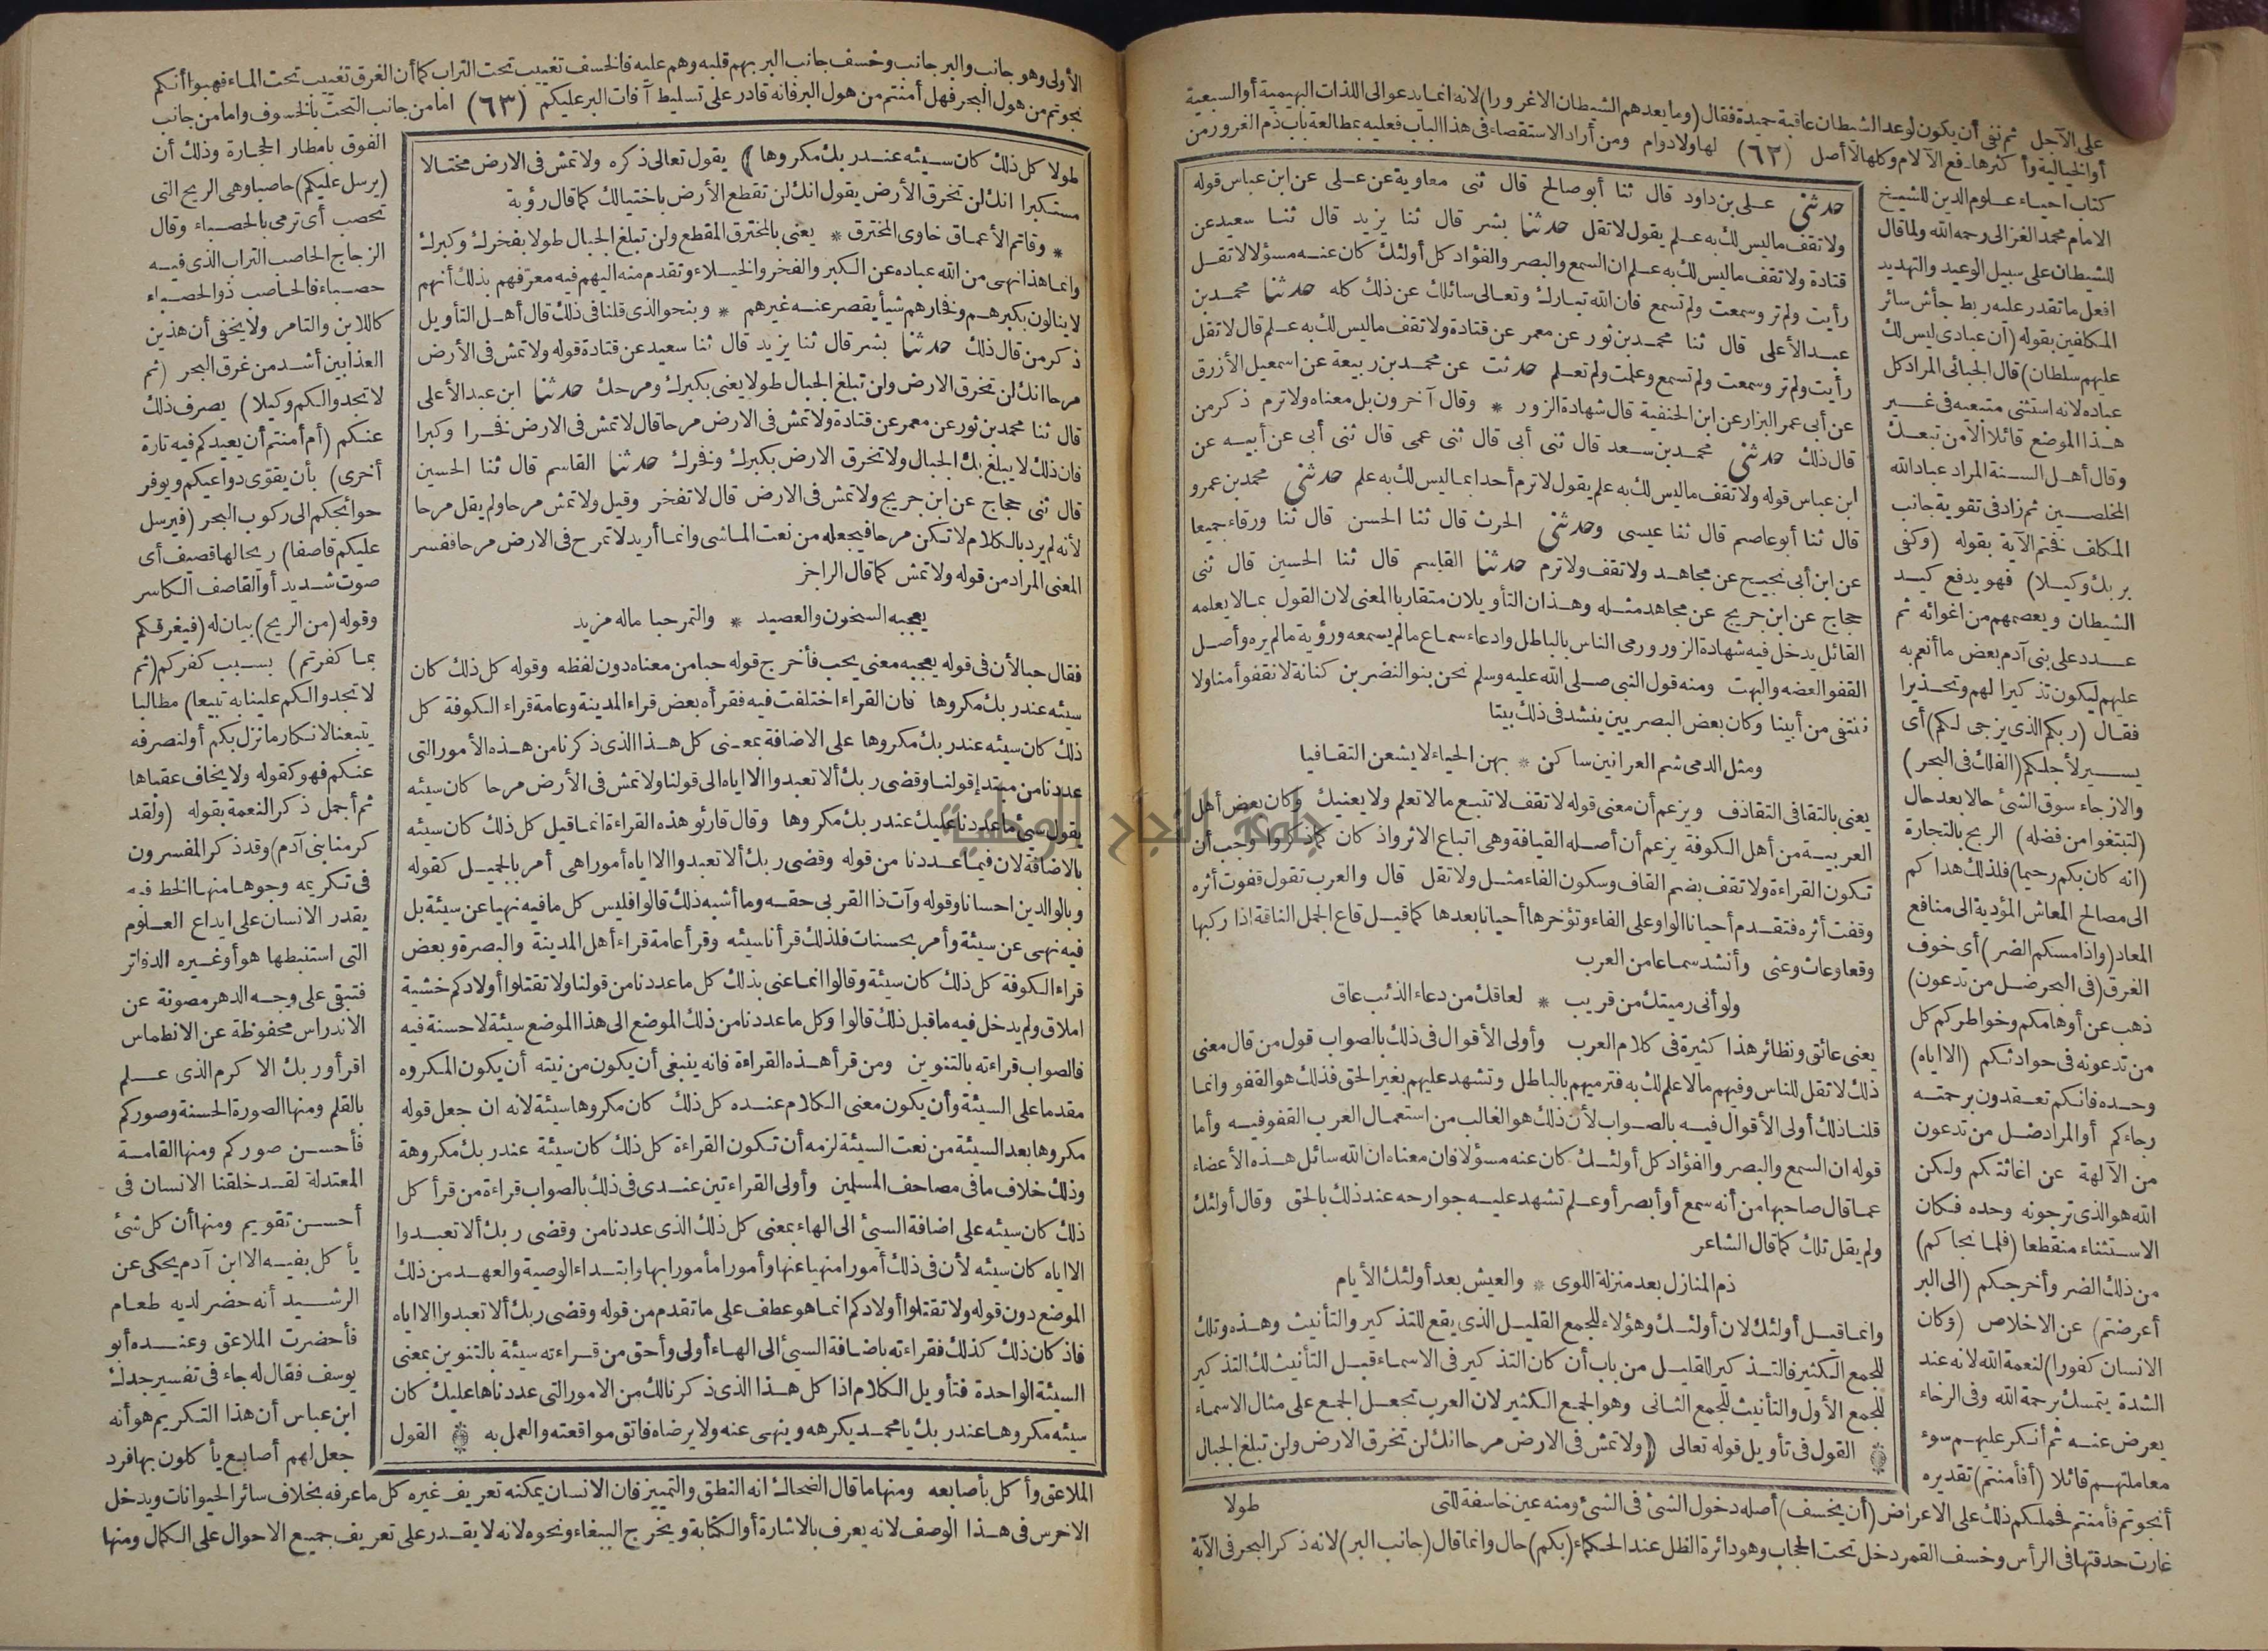 على الآجل ثم نفى أن يكون لوعد الشيطان عاقبة حميدة فقال (وما يعدهم الشيطان الا غرورا) لانه انما يدعو الى اللذات البهيمية أو السبعية
أو الخيالية وأكثرها دفع الآلام وكلها لا أصل (٦٢) لها ولا دوام ومن أراد الاستقصاء في هذا الباب فعليه بمطالعة باب ذم الغرور من
كتاب احياء علوم الدين للشيخ
الامام محمد الغزالى رحمه الله ولما قال
للشيطان على سبيل الوعيد والتهديد
افعل ما تقدر عليه ربط جأش سائر
المكلفين بقوله (ان عبادى ليس لك
عليهم سلطان) قال الجبائى المراد كل
عباده لانه استثنى متبعيه فى غير
هذا الموضع قائلا الامن تبعك
وقال أهل السنة المراد عباد الله
المخلصين ثم زاد فى تقوية جانب
المكلف فختم الآية بقوله (وكفى
بربك وكيلا) فهو يدفع كيد
الشيطان ويعصمهم من اغوائه ثم
عدد على بنى آدم بعض ما أنعم به
عليهم ليكون تذكيرا لهم وتحذيرا
فقال (ربكم الذى يزجى لكم) أى
يسير لأجلكم (الفلك فى البحر)
والازجاء سوق الشئ حالا بعد حال
(لتبتغوا من فضله) الربح بالتجارة
(انه كان بكم رحيما) فلذلك هداكم
الى مصالح المعاش المؤدية الى منافع
المعاد (واذا مسكم الضر) أى خوف
الغرق (فى البحر ضل من تدعون)
ذهب عن أوهامكم وخواطركم كل
من تدعونه فى حوادثكم (الا اياه)
وحده فانكم تعقدون برحمته
رجاءكم أو المراد ضل من تدعون
من الآلهة عن اغاثتكم ولكن
الله هو الذى ترجونه وحده فكان
الاستثناء منقطعا (فلما نجاكم)
من ذلك الضر وأخرجكم (الى البر
أعرضتم) عن الاخلاص (وكان
الانسان كفورا) لنعمة الله لانه عند
الشدة يتمسك برحمة الله وفى الرخاء
يعرض عنه ثم أنكر عليهم سوء
معاملتهم قائلا (أفأمنتم) تقديره
حدثنى على بن داود قال ثنا أبو صالح قال ثنى معاوية عن على عن ابن عباس قوله
ولا تقف ما ليس لك به علم يقول لا تقل حدثنا بشر قال ثنا يزيد قال ثنا سعيد عن
قتادة ولا تقف ما ليس لك به علم ان السمع والبصر والفؤاد كل أولئك كان عنه مسؤلا لا تقل
رأيت ولم تر وسمعت ولم تسمع فان الله تبارك وتعالى سائلك عن ذلك كله حدثنا محمد بن
عبد الأعلى قال ثنا محمد بن ثور عن معمر عن قتادة ولا تقف ما ليس لك به علم قال لا تقل
رأيت ولم تر وسمعت ولم تسمع وعلمت ولم تعلم حدثت عن محمد بن ربيعة عن اسمعيل الأزرق
عن أبى عمر البزار عن ابن الحنفية قال شهادة الزور * وقال آخرون بل معناه ولا ترم ذكر من
قال ذلك حدثنى محمد بن سعد قال ثنى أبى قال ثنى عمى قال ثنى أبى عن أبيه عن
ابن عباس قوله ولا تقف ما ليس لك به علم يقول لا ترم أحدا بما ليس لك به علم حدثنى محمد بن عمرو
قال ثنا أبو عاصم قال ثنا عيسى وحدثنى الحرث قال ثنا الحسن قال ثنا ورقاء جميعا
عن ابن أبى نجيح عن مجاهد ولا تقف ولا ترم حدثنا القاسم قال ثنا الحسين قال ثنى
حجاج عن ابن جريج عن مجاهد مثله وهذان التأويلان متقاربا المعنى لان القول بما لا يعلمه
القائل يدخل فيه شهادة الزور ورمى الناس بالباطل وادعاء سماع ما لم يسمعه ورؤية ما لم يره وأصل
القفو العضه والبهت ومنه قول النبى صلى الله عليه وسلم نحن بنو النضر بن كنانة لا نقفو أمنا ولا
ننتفى من أبينا وكان بعض البصريين ينشد فى ذلك بيتا
ومثل الدمى شم العرانين ساكن * بهن الحياء لا يشعن التقافيا
يعنى بالتقافى التقاذف ويزعم أن معنى قوله لا تقف لا تتبع ما لا تعلم ولا يعنيك وكان بعض أهل
العربية من أهل الكوفة يزعم أن أصله القيافة وهى اتباع الاثر واذ كان كما ذكروا وجب أن
تكون القراءة ولا تقف بضم القاف وسكون الفاء مثل ولا تقل قال والعرب تقول قفوت أثره
وقفت أثره فتقدم أحيانا الواو على الفاء وتؤخرها أحيانا بعدها كما قيل قاع الجمل الناقة اذا ركبها
وقعا وعاث وعثى وأنشد سماعا من العرب
ولو أنى رميتك من قريب * لعاقك من دعاء الذئب عاق
يعنى عائق ونظائر هذا كثيرة فى كلام العرب وأولى الأقوال فى ذلك بالصواب قول من قال معنى
ذلك لا تقل للناس وفيهم ما لا علم لك به فترميهم بالباطل وتشهد عليهم بغير الحق فذلك هو القفو وانما
قلنا ذلك أولى الأقوال فيه بالصواب لأن ذلك هو الغالب من استعمال العرب القفو فيه وأما
قوله ان السمع والبصر والفؤاد كل أولئك كان عنه مسؤلا فان معناه ان الله سائل هذه الأعضاء
عما قال صاحبها من أنه سمع أو أبصر أو علم تشهد عليه جوارحه عند ذلك بالحق وقال أولئك
ولم يقل تلك كما قال الشاعر
ذم المنازل بعد منزلة اللوى * والعيش بعد أولئك الأيام
وانما قيل أولئك لان أولئك وهؤلاء للجمع القليل الذى يقع للتذكير والتأنيث وهذه وتلك
للجمع الكثير فالتذكير للقليل من باب أن كان التذكير فى الاسماء قبل التأنيث لك التذكير
للجمع الأول والتأنيث للجمع الثانى وهو الجمع الكثير لان العرب تجعل الجمع على مثال الاسماء
القول فى تأويل قوله تعالى (ولا تمش فى الارض مرحا انك لن تخرق الارض ولن تبلغ الجبال
أنجوتم فأمنتم فحملكم ذلك على الاعراض (أن يخسف) أصله دخول الشئ فى الشئ ومنه عين خاسفة للتى طولا
غارت حدقتها فى الرأس وخسف القمر دخل تحت الحجاب وهو دائرة الظل عند الحكماء (بكم) حال وانما قال (جانب البر) لانه ذكر البحر فى الآية
الأولى وهو جانب والبر جانب وخسف جانب البر بهم قلبه وهم عليه فالخسف تغييب تحت التراب كما أن الغرق تغييب تحت الماء فهبوا أنكم
نجوتم من هول البحر فهل أمنتم من هول البر فانه قادر على تسليط آفات البر عليكم (٦٣) اما من جانب التحت بالخسوف واما من جانب
طولا كل ذلك كان سيئه عند ربك مكروها) يقول تعالى ذكره ولا تمش فى الارض مختالا
مستكبرا انك لن تخرق الأرض يقول انك لن تقطع الأرض باختيالك كما قال رؤبة
* وقاتم الأعماق خاوى المخترق * يعنى بالمخترق المقطع ولن تبلغ الجبال طولا بفخرك وكبرك
وانما هذا نهى من الله عباده عن الكبر والفخر والخيلاء وتقدم منه اليهم فيه معرفهم بذلك أنهم
لا ينالون بكبرهم وفخارهم شيأ يقصر عنه غيرهم * وبنحو الذى قلنا فى ذلك قال أهل التأويل
ذكر من قال ذلك حدثنا بشر قال ثنا يزيد قال ثنا سعيد عن قتادة قوله ولا تمش فى الأرض
مرحا انك لن تخرق الارض ولن تبلغ الجبال طولا يعنى بكبرك ومرحك حدثنا ابن عبد الأعلى
قال ثنا محمد بن ثور عن معمر عن قتادة ولا تمش فى الارض مرحا قال لا تمش فى الارض فخرا وكبرا
فان ذلك لا يبلغ بك الجبال ولا تخرق الارض بكبرك وفخرك حدثنا القاسم قال ثنا الحسين
قال ثنى حجاج عن ابن جريج ولا تمش فى الارض قال لا تفخر وقيل ولا تمش مرحا ولم يقل مرحا
لأنه لم يرد بالكلام لا تكن مرحا فيجعله من نعت الماشى وانما أريد لا تمرح فى الارض مرحا ففسر
المعنى المراد من قوله ولا تمش كما قال الراجز
يعجبه السخون والعصيد * والتمر حبا ماله مزيد
فقال حبا لأن فى قوله يعجبه معنى يحب فأخرج قوله حبا من معناه دون لفظه وقوله كل ذلك كان
سيئه عند ربك مكروها فان القراء اختلفت فيه فقرأه بعض قراء المدينة وعامة قراء الكوفة كل
ذلك كان سيئه عند ربك مكروها على الاضافة بمعنى كل هذا الذى ذكرنا من هذه الأمور التى
عددنا من مبتدإ قولنا وقضى ربك ألا تعبدوا الا اياه الى قولنا ولا تمش فى الأرض مرحا كان سيئه
يقول سيئ ما عددنا عليك عند ربك مكروها وقال قارئو هذه القراءة انما قيل كل ذلك كان سيئه
بالاضافة لان فيما عددنا من قوله وقضى ربك ألا تعبدوا الا اياه أمورا هى أمر بالجميل كقوله
وبالوالدين احسانا وقوله وآت ذا القربى حقه وما أشبه ذلك قالوا فليس كل ما فيه نهيا عن سيئة بل
فيه نهى عن سيئة وأمر بحسنات فلذلك قرأنا سيئه وقرأ عامة قراء أهل المدينة والبصرة وبعض
قراء الكوفة كل ذلك كان سيئة وقالوا انما عنى بذلك كل ما عددنا من قولنا ولا تقتلوا أولادكم خشية
املاق ولم يدخل فيه ما قبل ذلك قالوا وكل ما عددنا من ذلك الموضع الى هذا الموضع سيئة لا حسنة فيه
فالصواب قراءته بالتنوين ومن قرأ هذه القراءة فانه ينبغى أن يكون من نيته أن يكون المكروه
مقدما على السيئة وأن يكون معنى الكلام عنده كل ذلك كان مكروها سيئة لانه ان جعل قوله
مكروها بعد السيئة من نعت السيئة لزمه أن تكون القراءة كل ذلك كان سيئة عند ربك مكروهة
وذلك خلاف ما فى مصاحف المسلمين وأولى القراءتين عندى فى ذلك بالصواب قراءة من قرأ كل
ذلك كان سيئه على اضافة السيئ الى الهاء بمعنى كل ذلك الذى عددنا من وقضى ربك ألا تعبدوا
الا اياه كان سيئه لأن فى ذلك أمورا منهيا عنها وأمورا مأمورا بها وابتداء الوصية والعهد من ذلك
الموضع دون قوله ولا تقتلوا أولادكم انما هو عطف على ما تقدم من قوله وقضى ربك ألا تعبدوا الا اياه
فاذ كان ذلك كذلك فقراءته باضافة السيئ الى الهاء أولى وأحق من قراءته سيئة بالتنوين بمعنى
السيئة الواحدة فتأويل الكلام اذا كل هذا الذى ذكرنا لك من الامور التى عددناها عليك كان
سيئه مكروها عند ربك يا محمد يكرهه وينهى عنه ولا يرضاه فاتق مواقعته والعمل به القول
الفوق بامطار الحجارة وذلك أن
(يرسل عليكم) حاصبا وهى الريح التى
تحصب أى ترمى بالحصباء وقال
الزجاج الحاصب التراب الذى فيه
حصباء فالحاصب ذو الحصباء
كاللابن والتامر ولا يخفى أن هذين
العذابين أشد من غرق البحر (ثم
لا تجدوا لكم وكيلا) يصرف ذلك
عنكم (أم أمنتم أن يعيدكم فيه تارة
أخرى) بأن يقوى دواعيكم ويوفر
حوائجكم الى ركوب البحر (فيرسل
عليكم قاصفا) ريحا لها قصيف أى
صوت شديد أو القاصف الكاسر
وقوله (من الريح) بيان له (فيغرقكم
بما كفرتم) بسبب كفركم (ثم
لا تجدوا لكم علينا به تبيعا) مطالبا
يتبعنا لانكار ما نزل بكم أو لنصرفه
عنكم فهو كقوله ولا يخاف عقباها
ثم أجمل ذكر النعمة بقوله (ولقد
كرمنا بنى آدم) وقد ذكر المفسرون
فى تكريمه وجوها منها الخط فبه
يقدر الانسان على ايداع العلوم
التى استنبطها هو أو غيره الدفاتر
فتبقى على وجه الدهر مصونة عن
الاندراس محفوظة عن الانطماس
اقرأ وربك الاكرم الذى علم
بالقلم ومنها الصورة الحسنة وصوركم
فأحسن صوركم ومنها القامة
المعتدلة لقد خلقنا الانسان فى
أحسن تقويم ومنها أن كل شئ
يأكل بفيه الا ابن آدم يحكى عن
الرشيد أنه حضر لديه طعام
فأحضرت الملاعق وعنده أبو
يوسف فقال له جاء فى تفسير جدك
ابن عباس أن هذا التكريم هو أنه
جعل لهم أصابع يأكلون بها فرد
الملاعق وأكل بأصابعه ومنها ما قال الضحاك انه النطق والتمييز فان الانسان يمكنه تعريف غيره كل ما عرفه بخلاف سائر الحيوانات ويدخل
الاخرس فى هذا الوصف لانه يعرف بالاشارة أو الكتابة ويخرج الببغاء ونحوه لانه لا يقدر على تعريف جميع الاحوال على الكمال ومنها
جامعة النجاح الوطنية